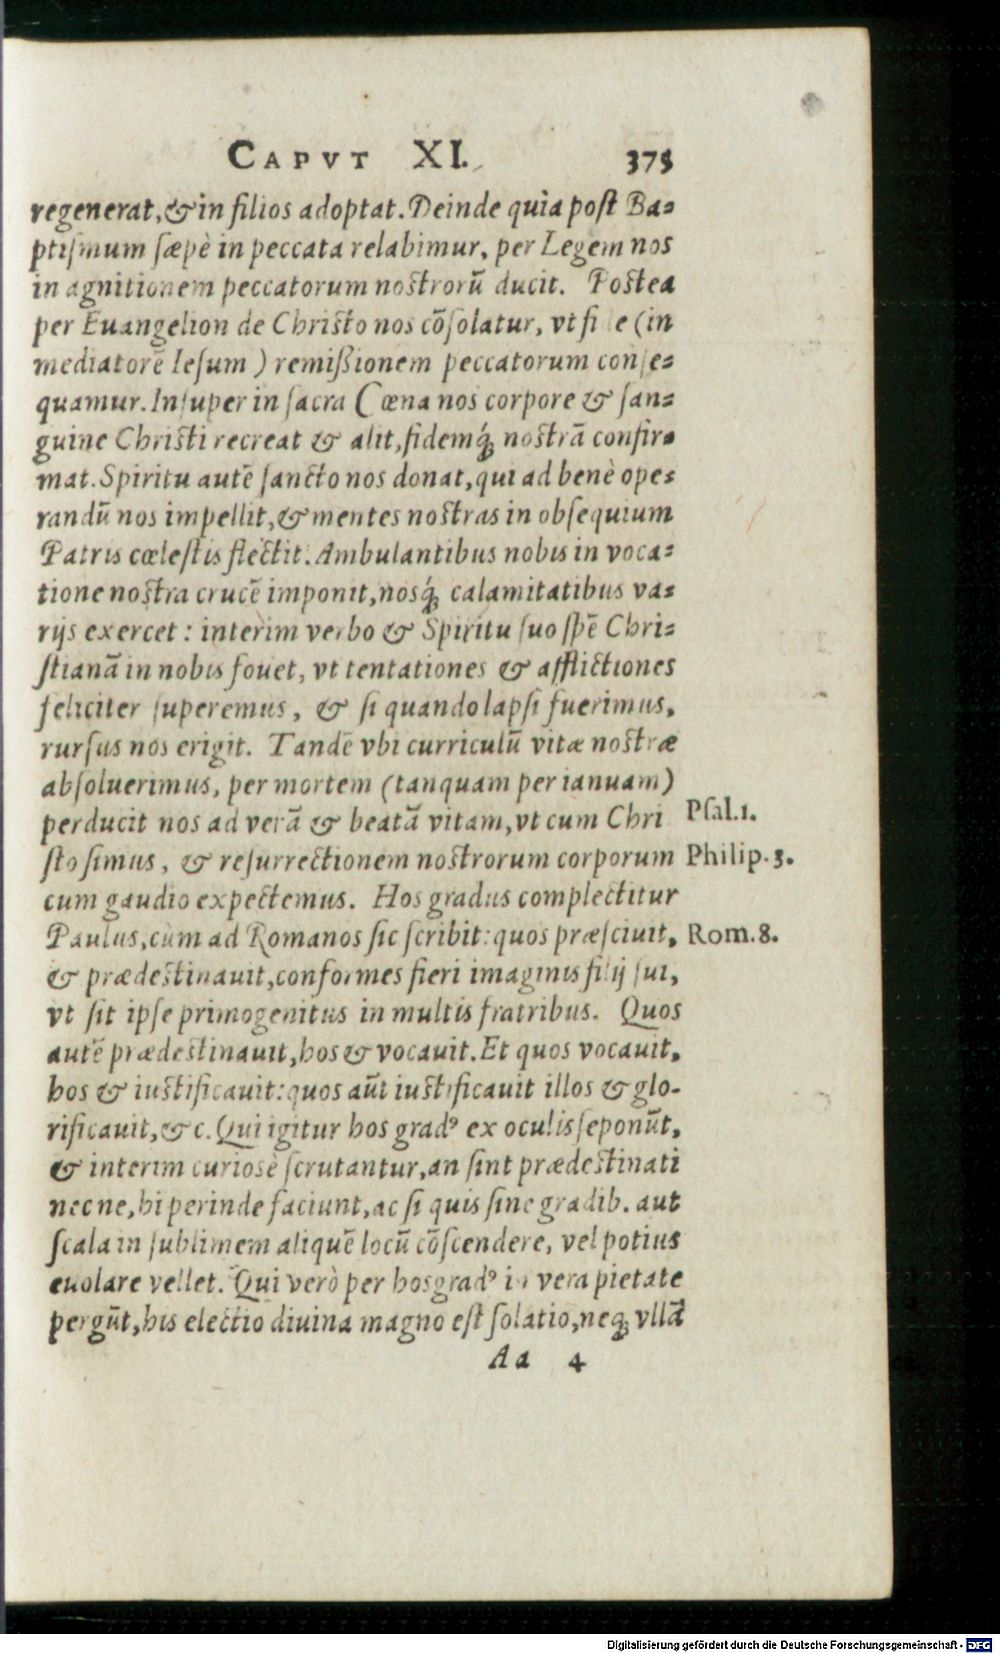 CAPVT XI. 375
regenerat, & in filios adoptat. Deinde quia post Ba-
ptismum sæpè in peccata relabimur, per Legem nos
in agnitionem peccatorum nostrorū ducit. Postea
per Euangelion de Christo nos cōsolatur, vt fi e (in
mediatorē Iesum) remißionem peccatorum conse-
quamur. Insuper in sacra Cœna nos corpore & san-
guine Christi recreat & alit, fidemq́; nostrā confir-
mat. Spiritu autē sancto nos donat, qui ad benè ope-
randū nos impellit, & mentes nostras in obsequium
Patris cœlestis flectit. Ambulantibus nobis in voca-
tione nostra crucē imponit, nosq́; calamitatibus va-
rijs exercet: interim verbo & Spiritu suo spē Chri-
stianā in nobis fouet, vt tentationes & afflictiones
feliciter superemus, & si quando lapsi fuerimus,
rursus nos erigit. Tandē vbi curriculū vitæ nostræ
absoluerimus, per mortem (tanquam per ianuam)
perducit nos ad verā & beatā vitam, vt cum Chri
Psal.1.
sto simus, & resurrectionem nostrorum corporum
Philip.3.
cum gaudio expectemus. Hos gradus complectitur
Paulus, cùm ad Romanos sic scribit: quos præsciuit,
Rom.8.
& prædestinauit, conformes fieri imaginis filij sui,
vt sit ipse primogenitus in multis fratribus. Quos
autē prædestinauit, hos & vocauit. Et quos vocauit,
hos & iustificauit: quos aūt iustificauit illos & glo-
rificauit, &c. Qui igitur hos gradꝰ ex oculis seponūt,
& interim curiosè scrutantur, an sint prædestinati
necne, hi perinde faciunt, ac si quis sine gradib. aut
scala in sublimem aliquē locū cōscendere, vel potius
euolare vellet. Qui verò per hos gradꝰ in vera pietate
pergūt, his electio diuina magno est solatio, neq; vllā
Aa 4
Digitalisierung gefördert durch die Deutsche Forschungsgemeinschaft - DFG